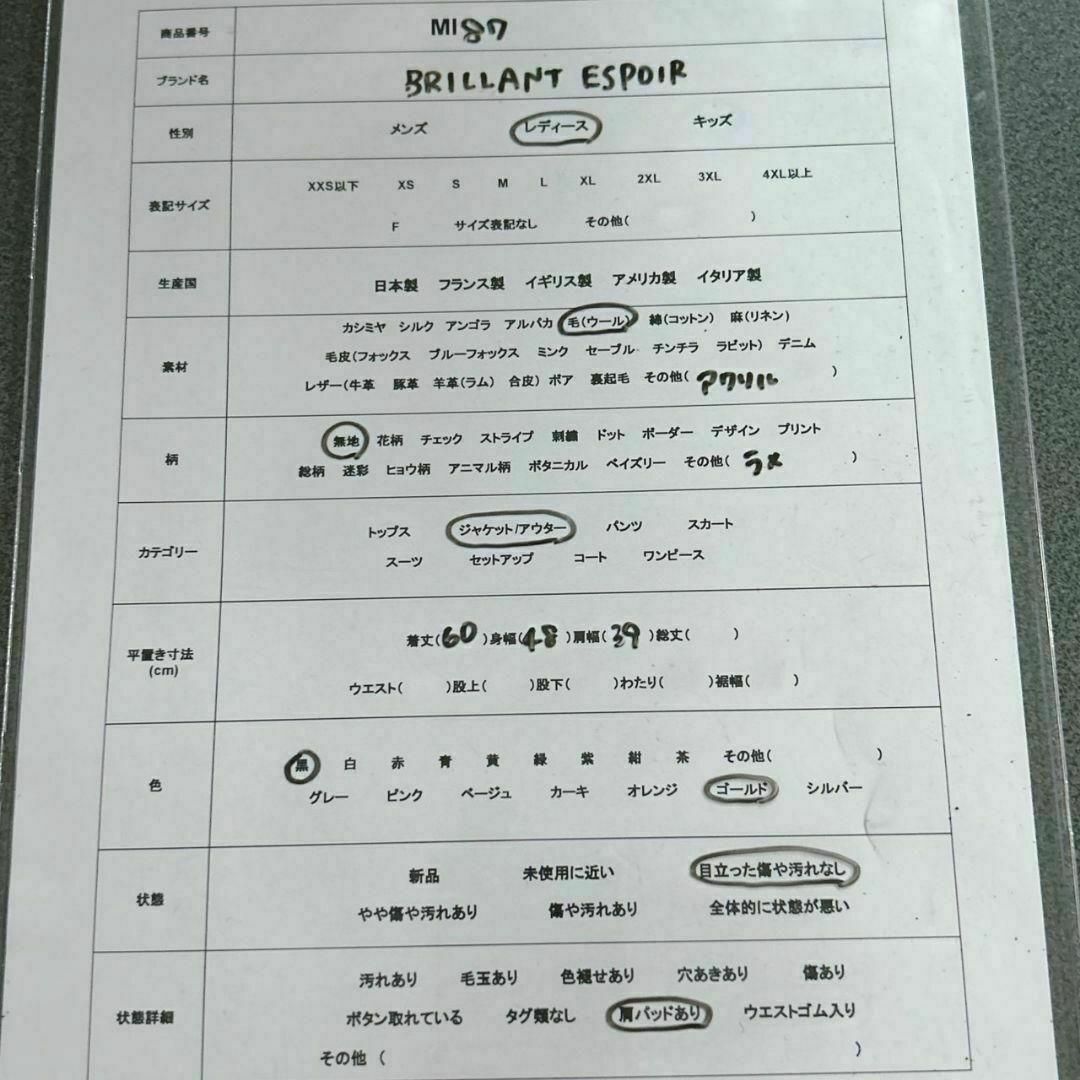 商品番号 MI87
ブランド名 BRILLANT ESPOIR
性別 メンズ レディース キッズ
XXS以下 XS S M L XL 2XL 3XL 4XL以上
表記サイズ
F サイズ表記なし その他( )
生産国 日本製 フランス製 イギリス製 アメリカ製 イタリア製
カシミヤ シルク アンゴラ アルパカ 毛(ウール) 綿(コットン) 麻(リネン)
素材 毛皮(フォックス ブルーフォックス ミンク セーブル チンチラ ラビット) デニム
レザー(牛革 豚革 羊革(ラム) 合皮) ボア 裏起毛 その他( アクリル )
柄 無地 花柄 チェック ストライプ 刺繍 ドット ボーダー デザイン プリント
総柄 迷彩 ヒョウ柄 アニマル柄 ボタニカル ペイズリー その他( ラメ )
カテゴリー トップス ジャケット/アウター パンツ スカート
スーツ セットアップ コート ワンピース
平置き寸法 着丈(60)身幅(48)肩幅(39)総丈( )
(cm) ウエスト( )股上( )股下( )わたり( )裾幅( )
色 黒 白 赤 青 黄 緑 紫 紺 茶 その他( )
グレー ピンク ベージュ カーキ オレンジ ゴールド シルバー
状態 新品 未使用に近い 目立った傷や汚れなし
やや傷や汚れあり 傷や汚れあり 全体的に状態が悪い
汚れあり 毛玉あり 色褪せあり 穴あきあり 傷あり
状態詳細 ボタン取れている タグ類なし 肩パッドあり ウエストゴム入り
その他 ( )